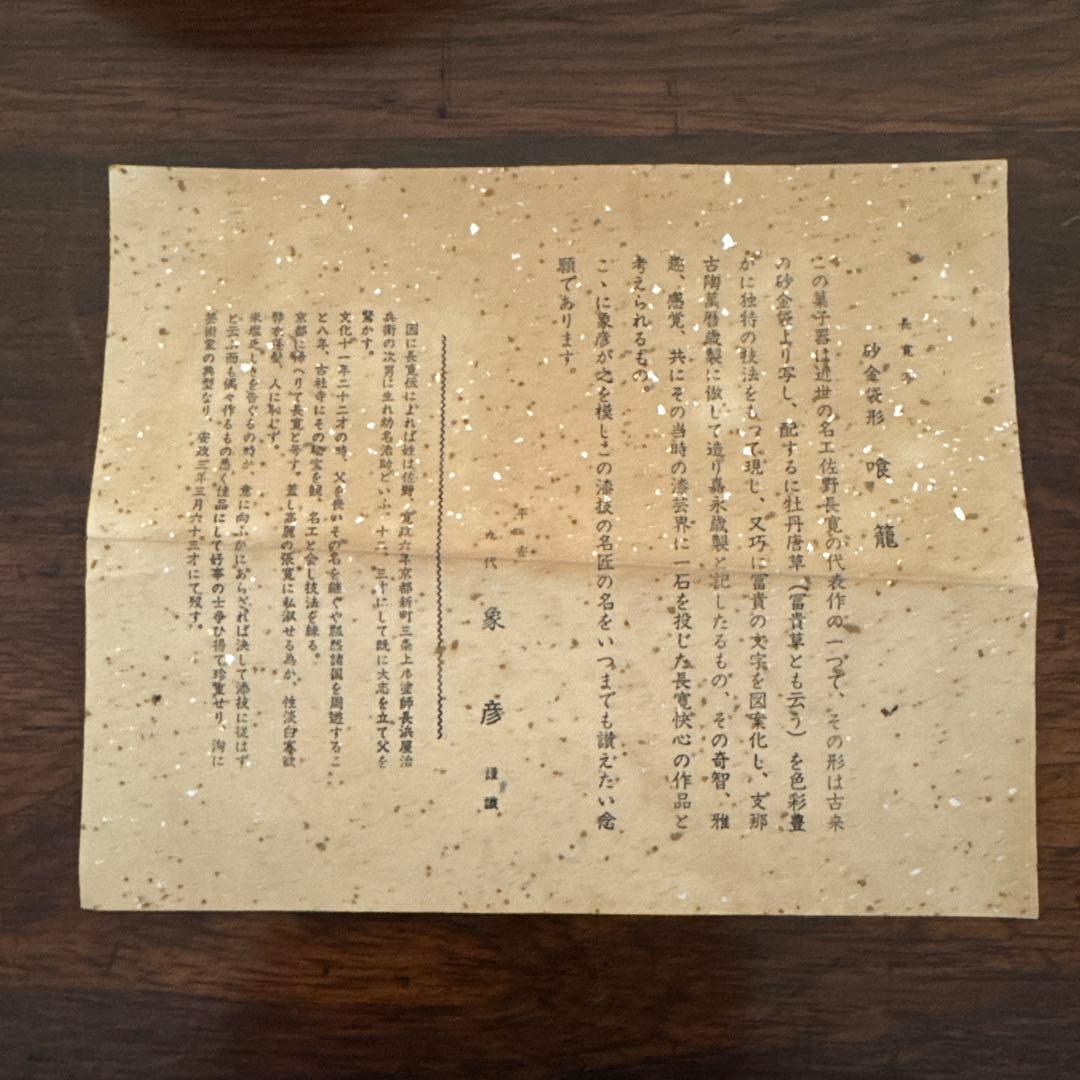 長寛
砂金袋形 喰籠
この菓子器は近世の名工佐野長寛の代表作の一つで、その形は古来
の砂金袋より写し、配するに牡丹唐草（富貴草とも云う）を色彩豊
かに独特の技法をもつて現し、又巧に富貴の文字を図案化し、支那
古陶萬暦歳製に倣して造り嘉永歳製と記したるもの、その奇智、雅
趣、感覚、共にその当時の漆芸界に一石を投じた長寛快心の作品と
考えられるもの。
こゝに象彦が之を模しこの漆技の名匠の名をいつまでも讃えたい念
願であります。
平安
九代 象彦 謹識
因に長寛伝によれば姓は佐野、寛政六年京都新町三条上ル塗師長浜屋治
兵衛の次男に生れ幼名治助といふ、十二、三才にして既に大志を立て父を
驚かす。
文化十一年二十二才の時、父を喪いその名を継ぐや飄然諸国を周遊するこ
と八年、古社寺にその秘宝を観、名工と会し技法を練る。
京都に帰へりて長寛と号す。蓋し高麗の張寛に私淑せる為か、性淡白寡欲
弊衣蓬髪、人に恥じず。
米塩乏しきを告ぐるの時か、意に向ふかにあらざれば決して漆技に従はず
と云ふ而も偶々作るもの悉く佳品にして好事の士争ひ得て珍重せり、洵に
芸術家の典型なり、安政三年三月六十三才にて歿す。